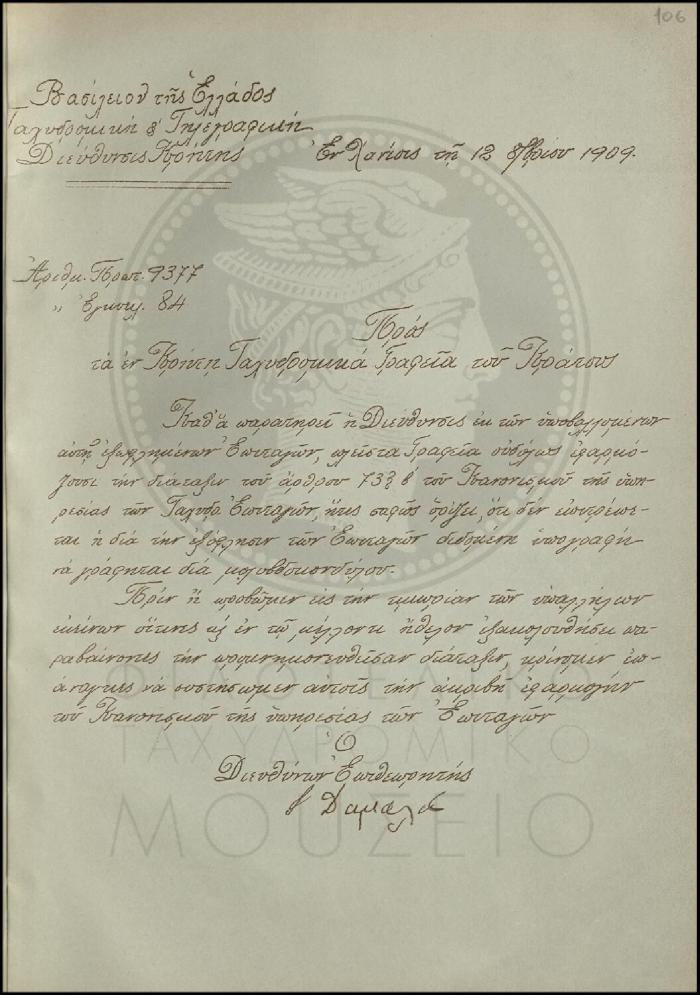 106
Βασίλειον τῆς Ἑλλάδος
Ταχυδρομικὴ & Τηλεγραφικὴ
Διεύθυνσις Κρήτης
Ἐν Χανίοις τῇ 12 8/βρίου 1909.
Ἀριθμ. Πρωτ. 9377
〃 Ἐγκυκλ. 84
Πρὸς
τὰ ἐν Κρήτῃ Ταχυδρομικὰ Γραφεῖα τοῦ Κράτους
Καθ' ἃ παρατηρεῖ ἡ Διεύθυνσις ἐκ τῶν ὑποβαλλομένων
αὐτῇ ἐξωφλημένων Ἐπιταγῶν, πλεῖστα Γραφεῖα οὐδόλως ἐφαρμό-
ζουσι τὴν διάταξιν τοῦ ἄρθρου 73 § β τοῦ Κανονισμοῦ τῆς ὑπη-
ρεσίας τῶν Ταχυδρ. Ἐπιταγῶν, ἥτις σαφῶς ὁρίζει, ὅτι δὲν ἐπιτρέπε-
ται ἡ διὰ τὴν ἐξόφλησιν τῶν Ἐπιταγῶν διδομένη ὑπογραφὴ
νὰ γράφηται διὰ μολυβδοκονδύλου.
Πρὶν ἢ προβῶμεν εἰς τὴν τιμωρίαν τῶν ὑπαλλήλων
ἐκείνων οἵτινες ἐν τῷ μέλλοντι ἤθελον ἐξακολουθήσει πα-
ραβαίνοντες τὴν προμνημονευθεῖσαν διάταξιν, κρίνομεν ἐπ-
άναγκες νὰ συστήσωμεν αὐτοῖς τὴν ἀκριβῆ ἐφαρμογὴν
τοῦ Κανονισμοῦ τῆς ὑπηρεσίας τῶν Ἐπιταγῶν
Ὁ
Διευθύνων Ἐπιθεωρητὴς
Δαμαλᾶς
ΦΙΛΟΤΕΛΙΚΟ
ΤΑΧΥΔΡΟΜΙΚΟ
ΜΟΥΣΕΙΟ